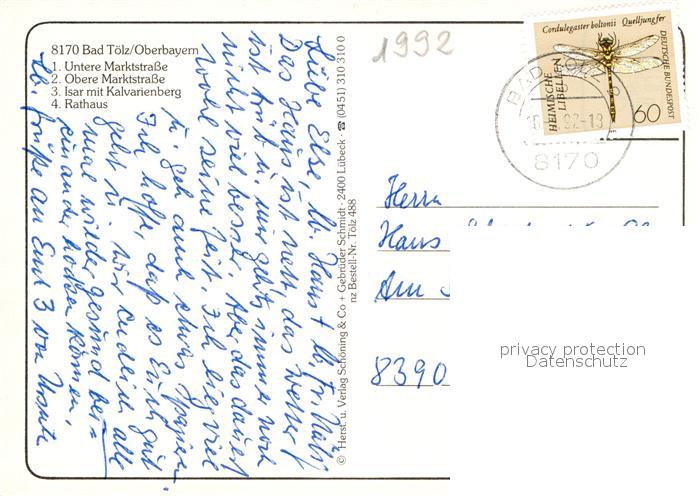 8170 Bad Tölz/Oberbayern
1. Untere Marktstraße
2. Obere Marktstraße
3. Isar mit Kalvarienberg
4. Rathaus
Liebe Else, lb. Hans + lb. Fr.
Das Haus ist nett, das Wetter
ist trüb u. mir gehts immer noch
nicht viel besser. Aber das dauert
wohl seine Zeit. Ich liege viel
u. geh auch etwas spazieren.
Ich hoffe, daß es Euch gut
geht u. wir endlich alle
mal wieder gesund bei-
einander hocken können.
lb. Grüße an Euch 3 von Ursula
© Herst. u. Verlag Schöning & Co + Gebrüder Schmidt · 2400 Lübeck · ☎ (0451) 310 310 0
nz Bestell-Nr. Tölz 488
1992
Cordulegaster boltonii Quelljungfer
HEIMISCHE
LIBELLEN
DEUTSCHE BUNDESPOST
60
BAD TÖLZ
92-18
8170
Herrn
Hans
Am
8390
privacy protection
Datenschutz